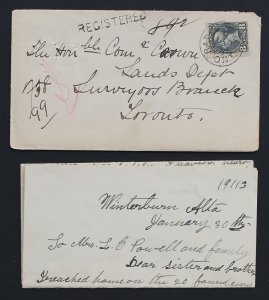 REGISTERED
The Hon ble Com r Crown
Lands Dept
Surveyors Branch
Toronto.
99
19113
Winterburn Alta
January 30 th
To Mrs. L C Powell and family
Dear sister and brother
I reached home on the 20 found every